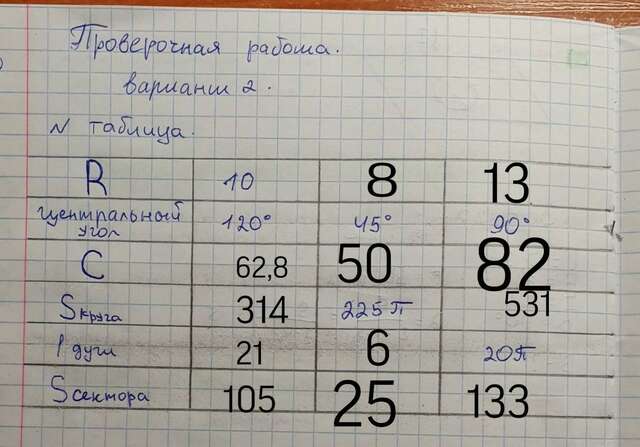 Проверочная работа.
вариант 2.
N таблица.
R 10 8 13
центральный угол 120° 45° 90°
C 62,8 50 82
S круга 314 225π 531
l дуги 21 6 20π
S сектора 105 25 133